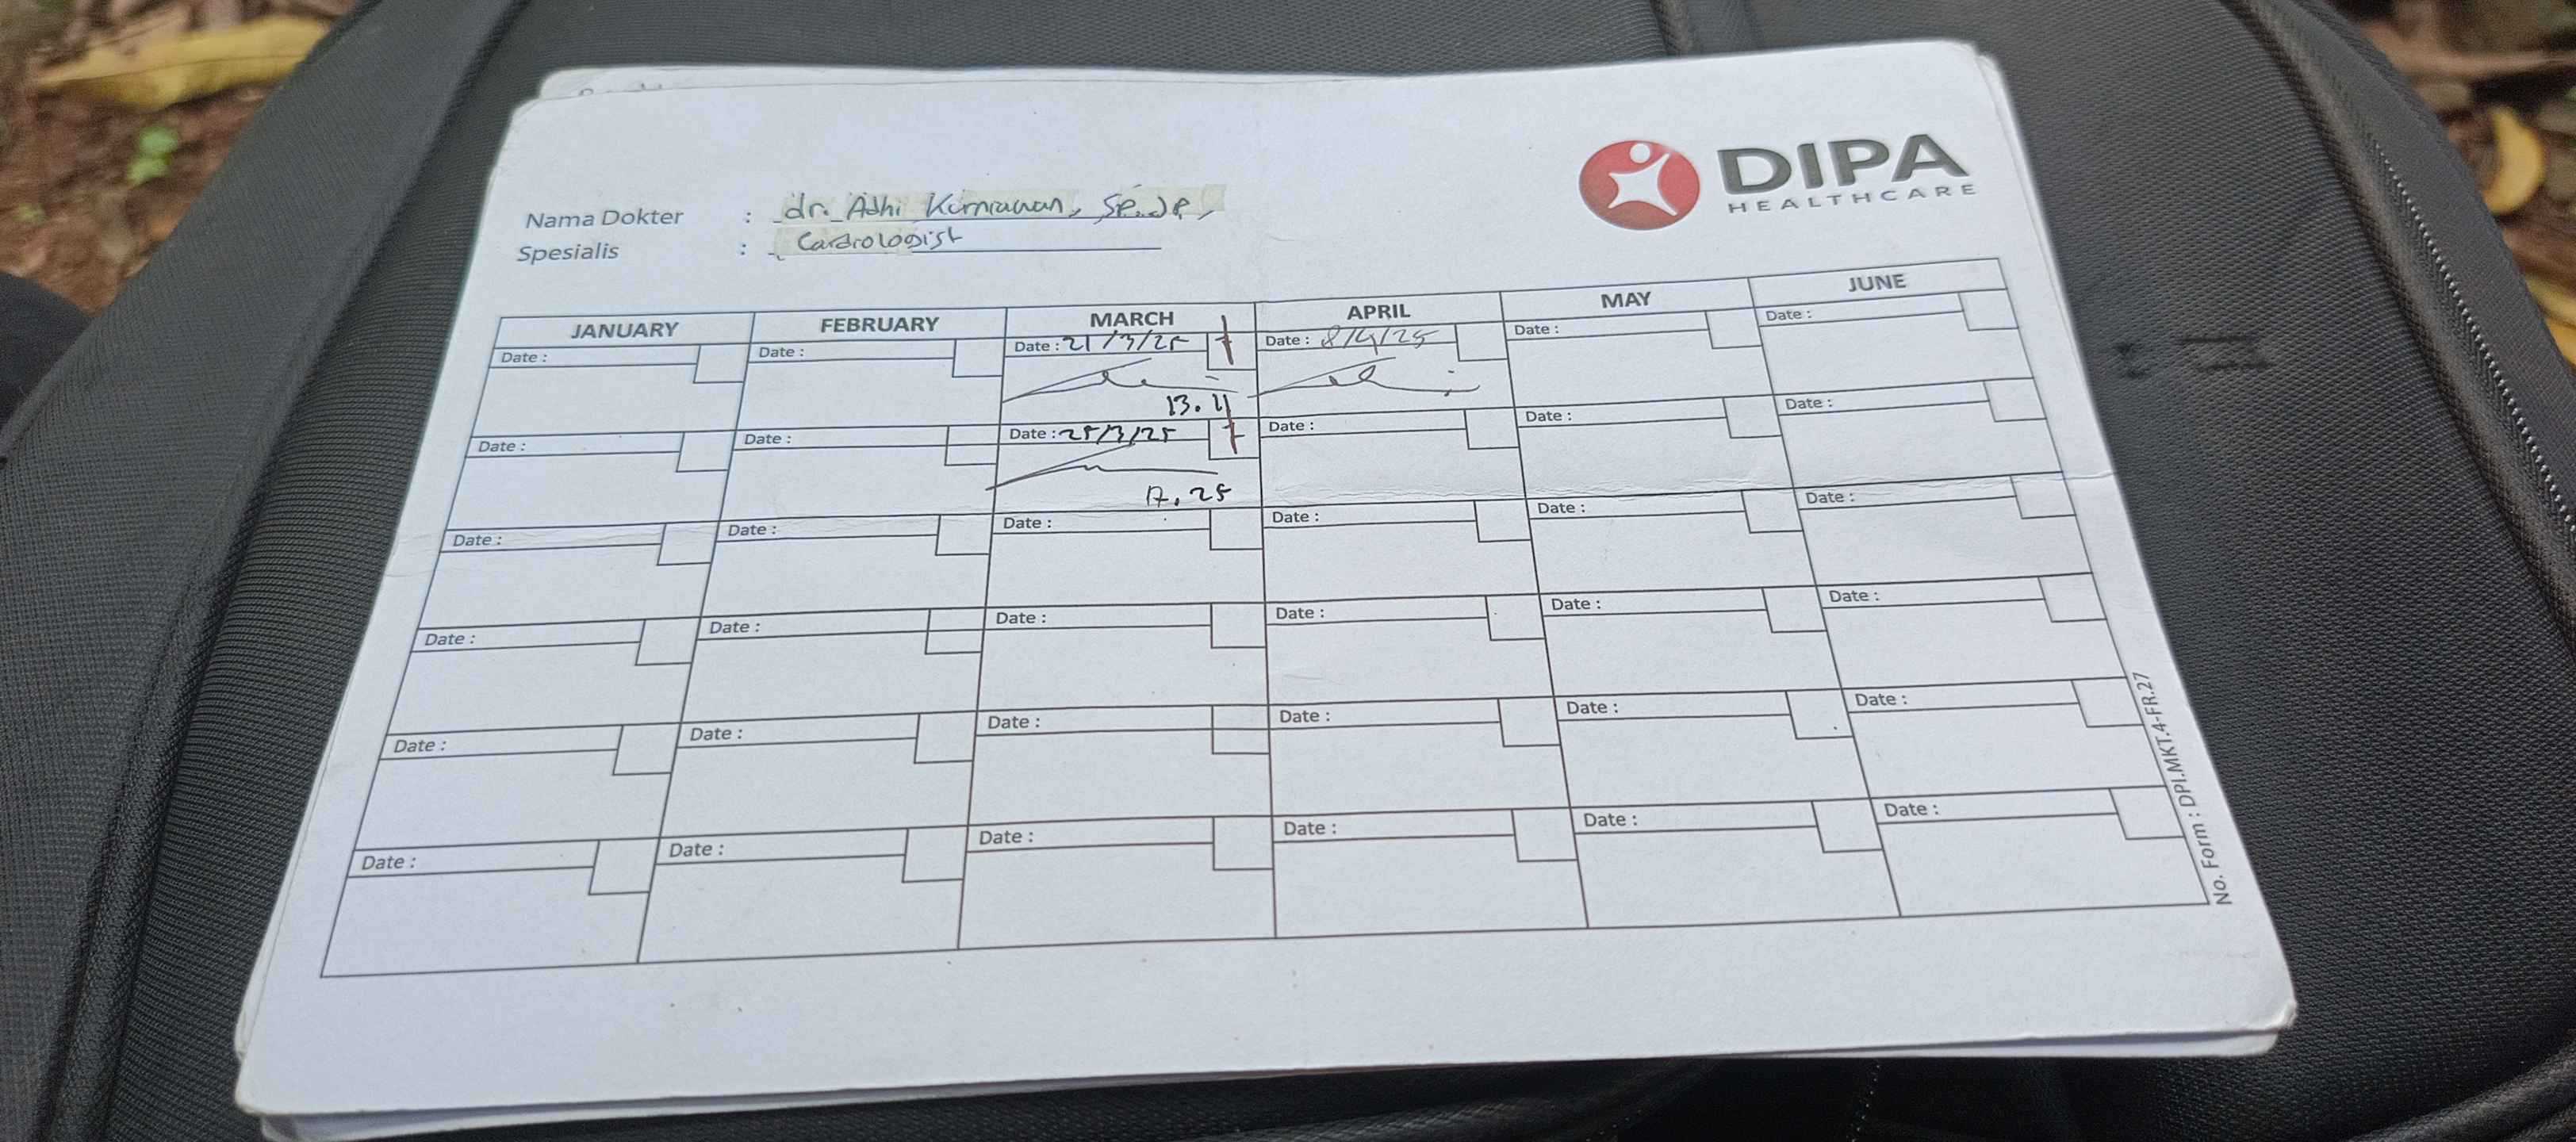 DIPA
HEALTHCARE
Nama Dokter : dr. Adhi Kurniawan, Sp.JP,
Spesialis : Cardiologist
JANUARY FEBRUARY MARCH APRIL MAY JUNE
Date : Date : Date : 21/3/25 Date : 8/4/25 Date : Date :
13.11
Date : Date : Date : 25/3/25 Date : Date : Date :
17.25
Date : Date : Date : Date : Date : Date :
Date : Date : Date : Date : Date : Date :
Date : Date : Date : Date : Date : Date :
Date : Date : Date : Date : Date : Date :
No. Form : DPI.MKT.4-FR.27